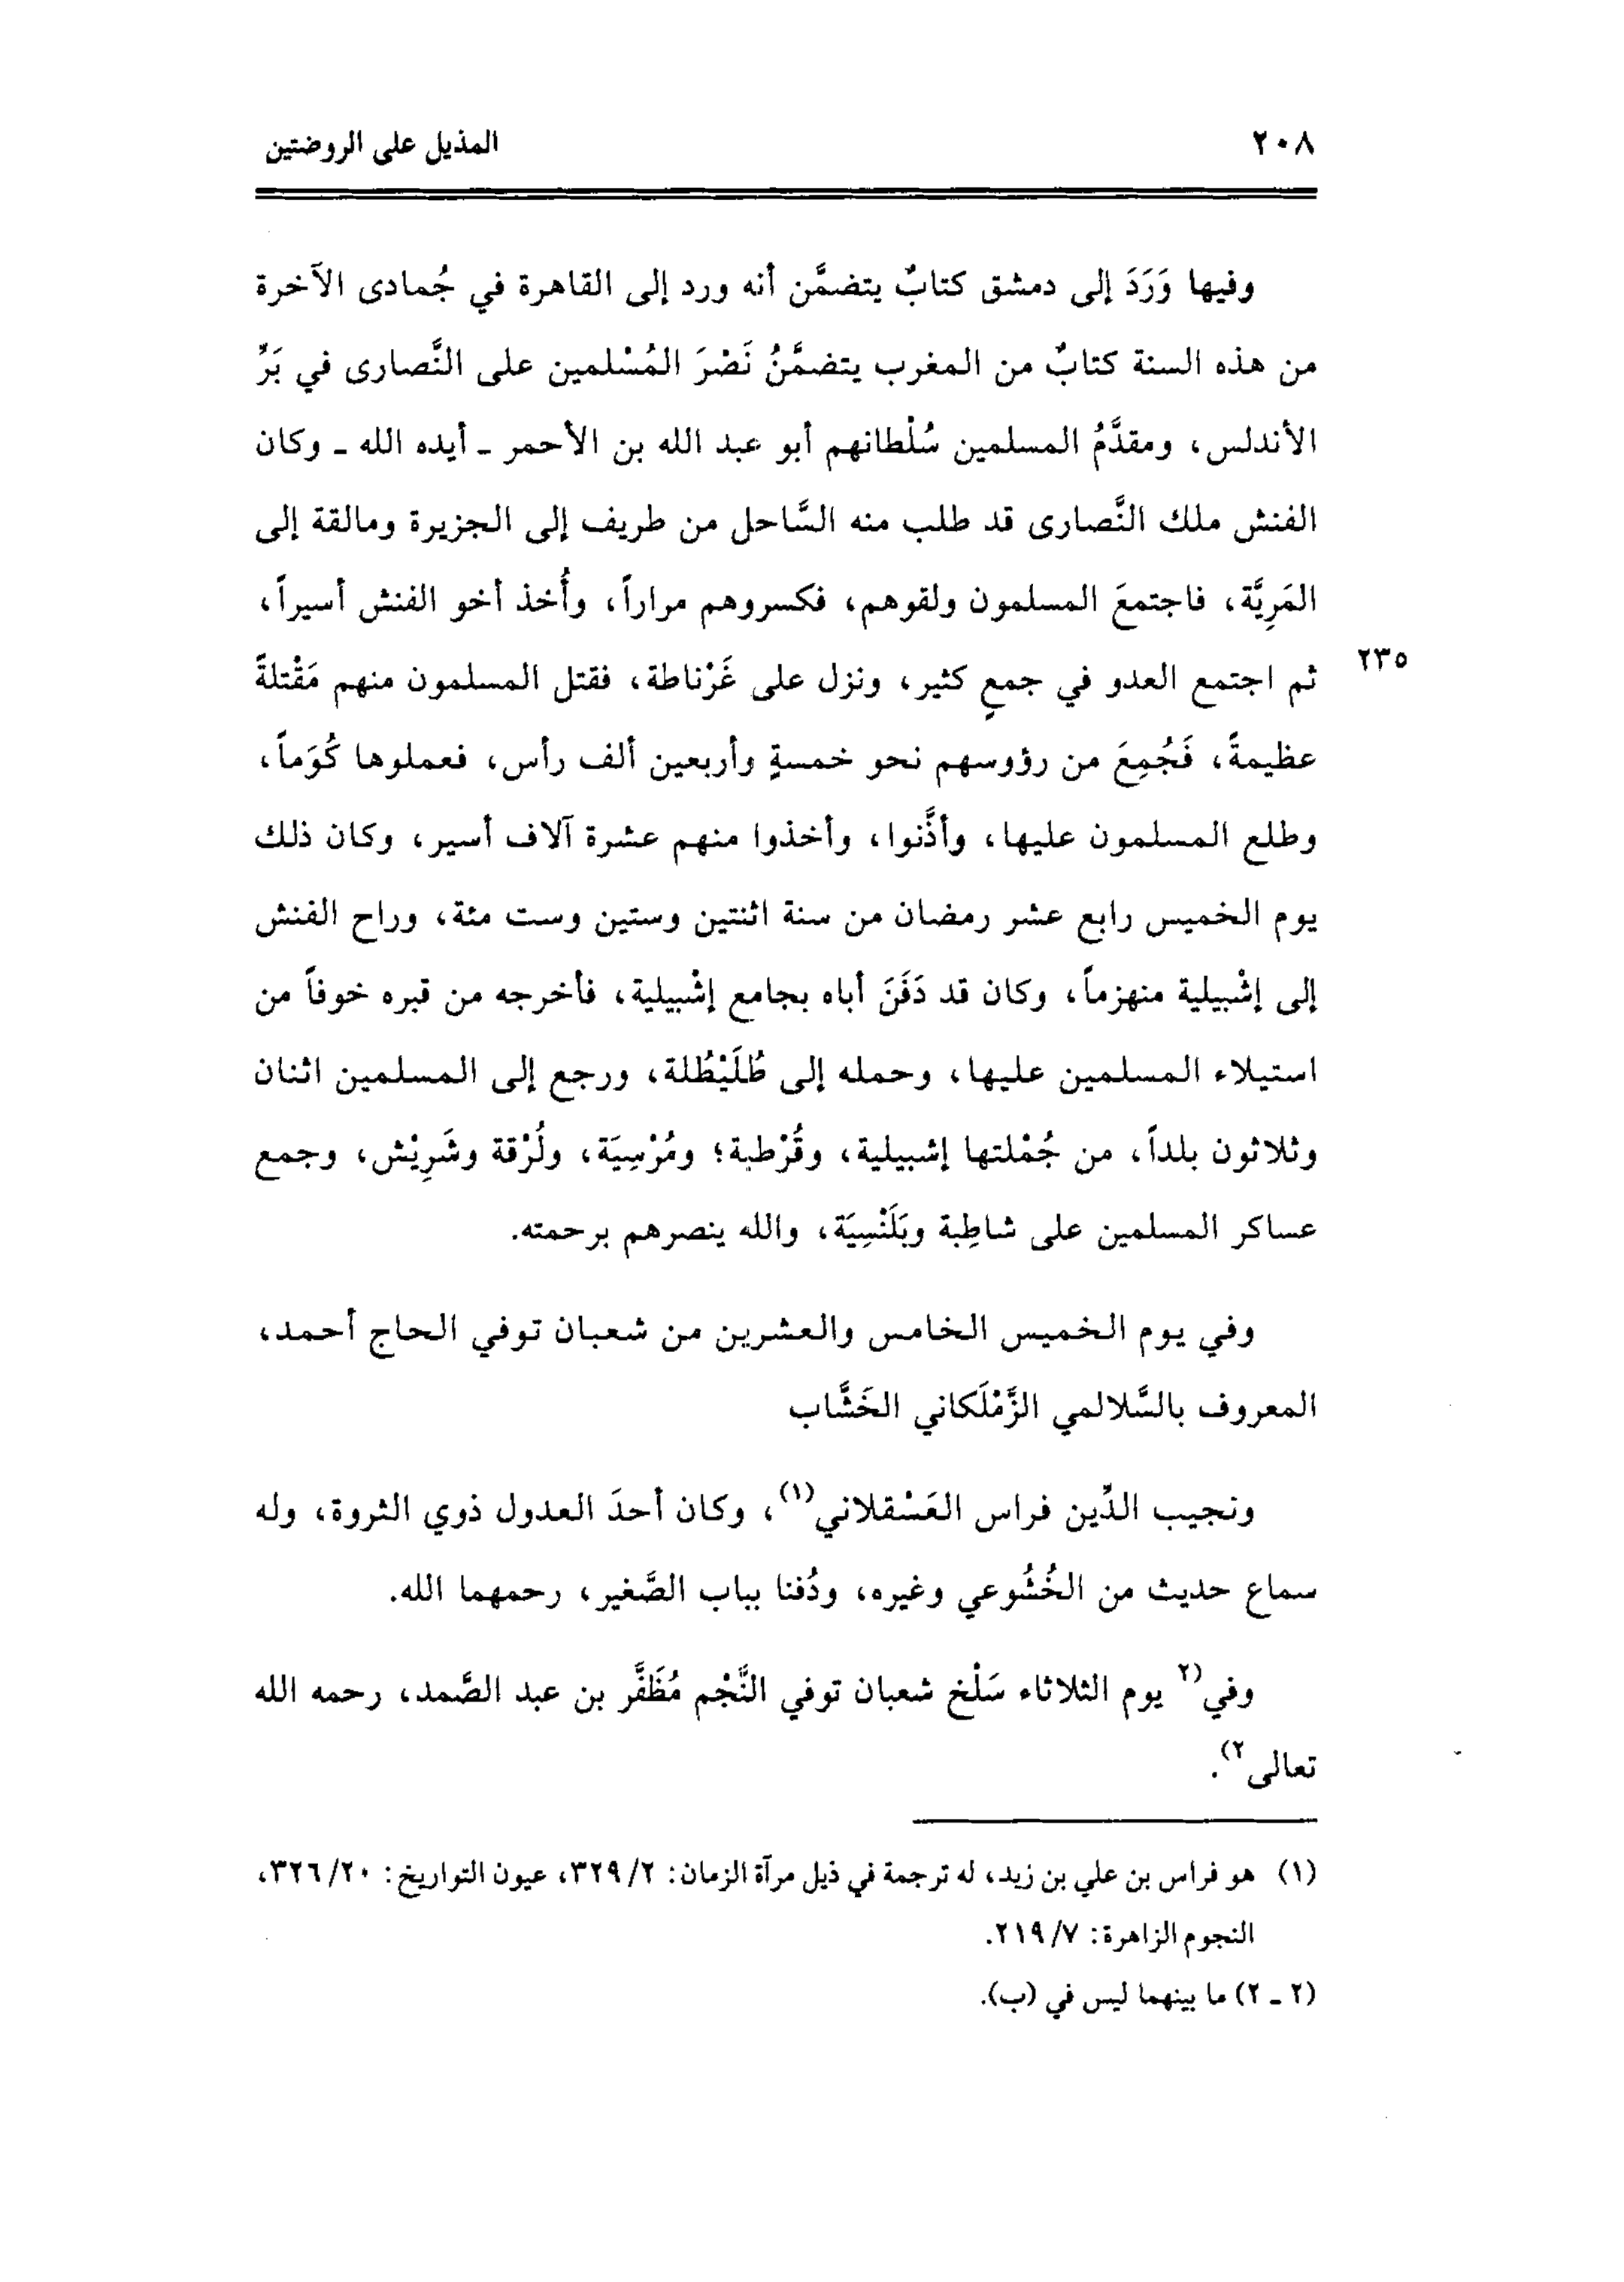 ٢٠٨ المذيل على الروضتين
وفيها وَرَدَ إلى دمشق كتابٌ يتضمَّن أنه ورد إلى القاهرة في جُمادى الآخرة
من هذه السنة كتابٌ من المغرب يتضمَّنُ نَصْرَ المُسْلمين على النَّصارى في بَرِّ
الأندلس، ومقدَّمُ المسلمين سُلْطانهم أبو عبد الله بن الأحمر ـ أيده الله ـ وكان
الفنش ملك النَّصارى قد طلب منه السَّاحل من طريف إلى الجزيرة ومالقة إلى
المَرِيَّة، فاجتمعَ المسلمون ولقوهم، فكسروهم مراراً، وأُخذ أخو الفنش أسيراً،
ثم اجتمع العدو في جمعٍ كثير، ونزل على غَرْناطة، فقتل المسلمون منهم مَقْتلةً ٢٣٥
عظيمةً، فَجُمِعَ من رؤوسهم نحو خمسةٍ وأربعين ألف رأس، فعملوها كُوَماً،
وطلع المسلمون عليها، وأذَّنوا، وأخذوا منهم عشرة آلاف أسير، وكان ذلك
يوم الخميس رابع عشر رمضان من سنة اثنتين وستين وست مئة، وراح الفنش
إلى إشْبيلية منهزماً، وكان قد دَفَنَ أباه بجامع إشْبيلية، فأخرجه من قبره خوفاً من
استيلاء المسلمين عليها، وحمله إلى طُلَيْطُلة، ورجع إلى المسلمين اثنان
وثلاثون بلداً، من جُمْلتها إشبيلية، وقُرْطبة؛ ومُرْسِيَة، ولُرْقة وشَرِيْش، وجمع
عساكر المسلمين على شاطِبة وبَلَنْسِيَة، والله ينصرهم برحمته.
وفي يوم الخميس الخامس والعشرين من شعبان توفي الحاج أحمد،
المعروف بالسَّلالمي الزَّمْلَكاني الخَشَّاب
ونجيب الدِّين فراس العَسْقلاني(١)، وكان أحدَ العدول ذوي الثروة، وله
سماع حديث من الخُشُوعي وغيره، ودُفنا بباب الصَّغير، رحمهما الله.
وفي(٢ يوم الثلاثاء سَلْخ شعبان توفي النَّجْم مُظَفَّر بن عبد الصَّمد، رحمه الله
تعالى٢).
(١) هو فراس بن علي بن زيد، له ترجمة في ذيل مرآة الزمان: ٢/ ٣٢٩، عيون التواريخ: ٢٠/ ٣٢٦،
النجوم الزاهرة: ٧/ ٢١٩.
(٢ ـ ٢) ما بينهما ليس في (ب).